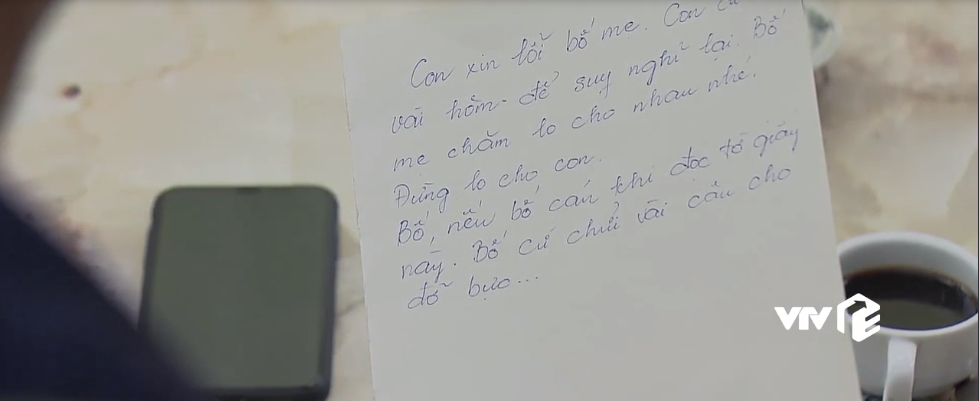 Con xin lỗi bố mẹ. Con
vài hôm để suy nghĩ lại. Bố
mẹ chăm lo cho nhau nhé.
Đừng lo cho con.
Bố, nếu bố cáu khi đọc tờ giấy
này. Bố cứ chửi vài câu cho
đỡ bực...
VTV